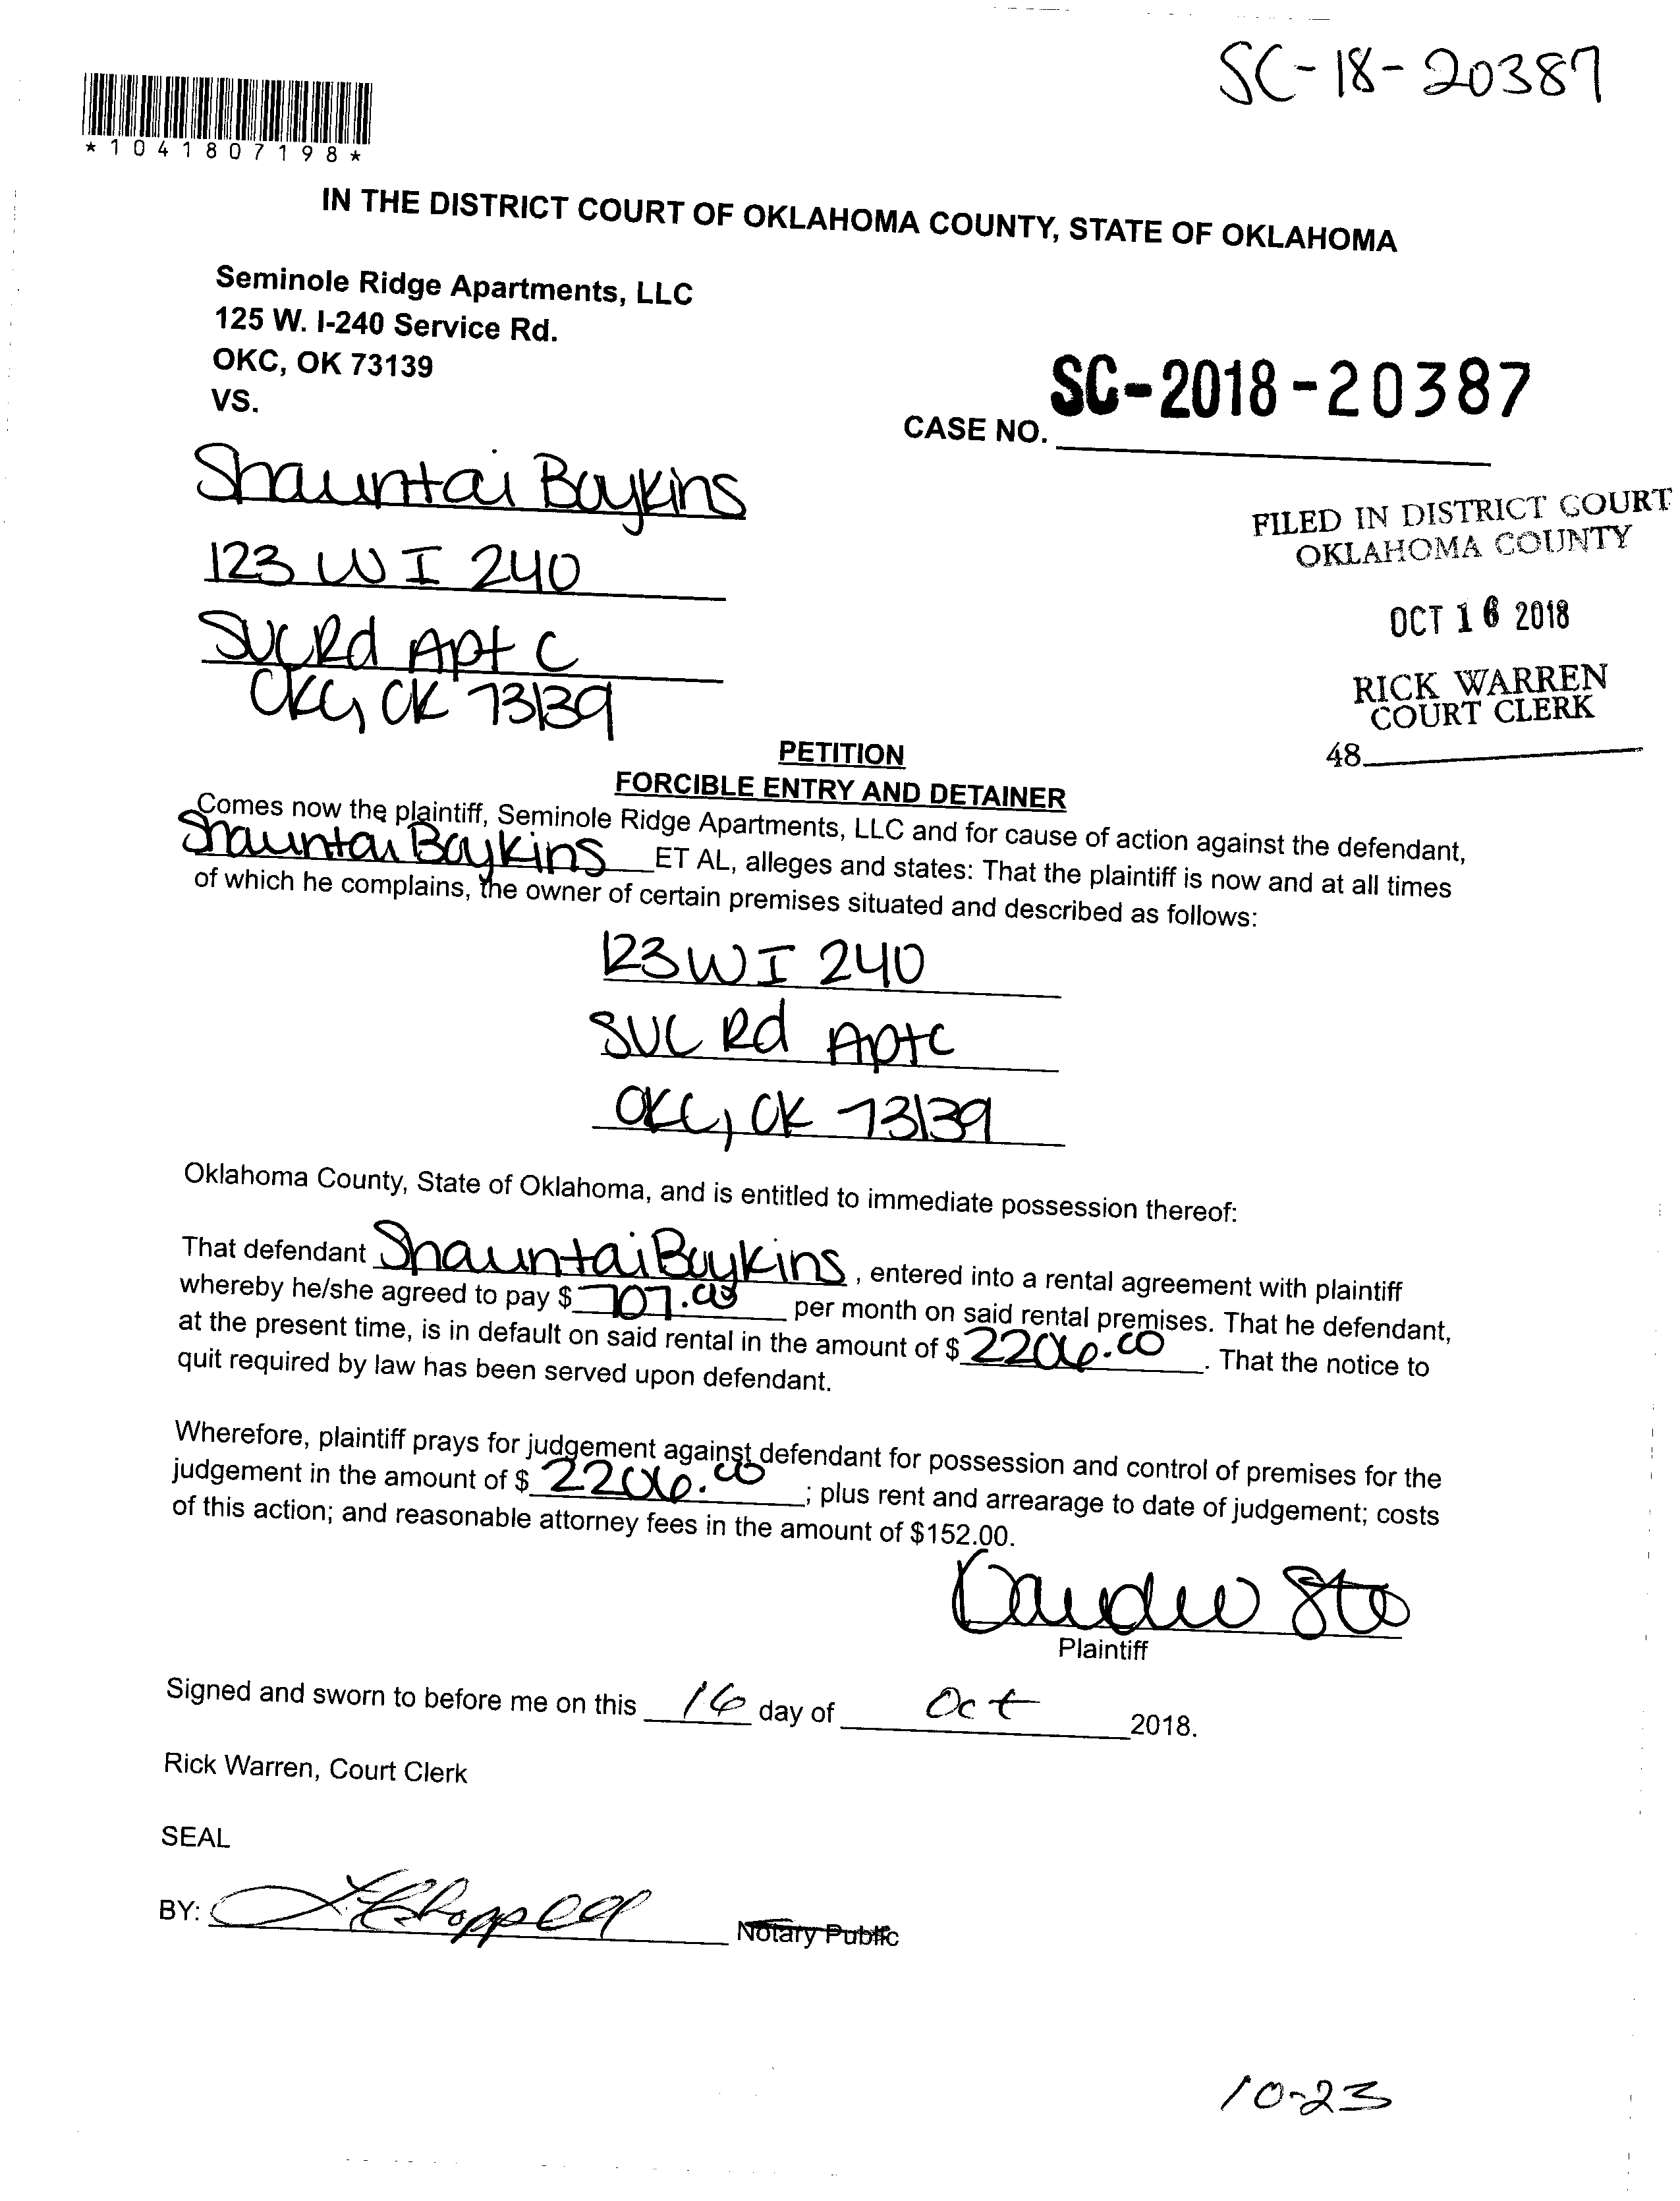 SC-18-20387
*1041807198*
IN THE DISTRICT COURT OF OKLAHOMA COUNTY, STATE OF OKLAHOMA
Seminole Ridge Apartments, LLC
125 W. I-240 Service Rd.
OKC, OK 73139
VS.
SC-2018-20387
CASE NO.
Shauntai Boykins
123 W I 240
SVC Rd Apt C
OKC, OK 73139
FILED IN DISTRICT COURT
OKLAHOMA COUNTY
OCT 16 2018
RICK WARREN
COURT CLERK
48
PETITION
FORCIBLE ENTRY AND DETAINER
Comes now the plaintiff, Seminole Ridge Apartments, LLC and for cause of action against the defendant,
Shauntai Boykins ET AL, alleges and states: That the plaintiff is now and at all times
of which he complains, the owner of certain premises situated and described as follows:
123 W I 240
SVC Rd Apt C
OKC, OK 73139
Oklahoma County, State of Oklahoma, and is entitled to immediate possession thereof:
That defendant Shauntai Boykins, entered into a rental agreement with plaintiff
whereby he/she agreed to pay $ 707.00 per month on said rental premises. That he defendant,
at the present time, is in default on said rental in the amount of $ 2206.00. That the notice to
quit required by law has been served upon defendant.
Wherefore, plaintiff prays for judgement against defendant for possession and control of premises for the
judgement in the amount of $ 2206.00; plus rent and arrearage to date of judgement; costs
of this action; and reasonable attorney fees in the amount of $152.00.
Plaintiff
Signed and sworn to before me on this 16 day of Oct 2018.
Rick Warren, Court Clerk
SEAL
BY: Notary Public
10-23